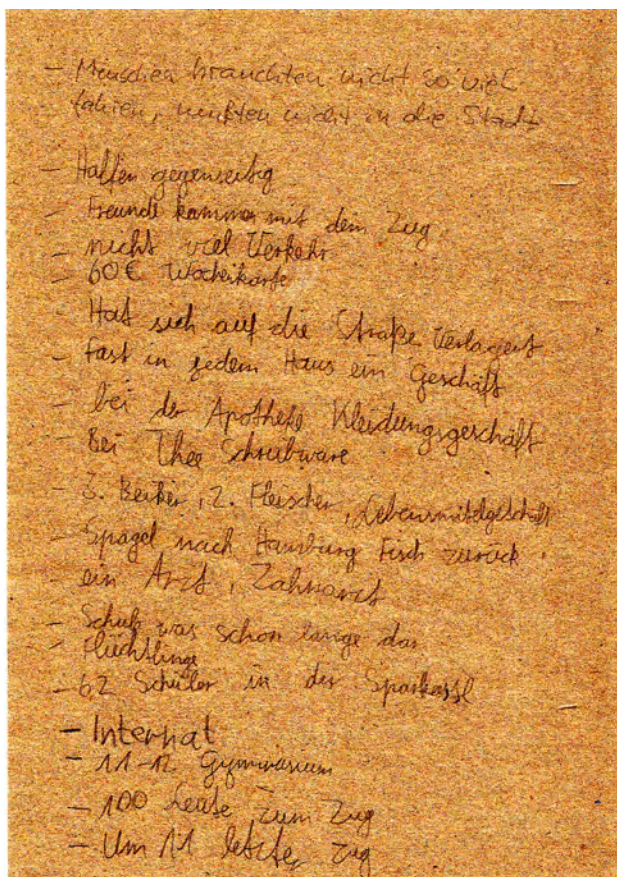 - Menschen brauchten nicht so viel
fahren, mußten nicht in die Stadt
- Halfen gegenseitig
- Freunde kammen mit dem Zug
- nicht viel Verkehr
- 60€ Wochenkarte
- Hat sich auf die Straße Verlagert
- Fast in jedem Haus ein Geschäft
- bei der Apotheke Kleidungsgeschäft
- Bei Thee Schreibware
- 3. Becker, 2. Fleischer, Lebensmittelgeschäft
- Spagel nach Hamburg Fisch zurück
- ein Arzt, Zahnarzt
- was schon lange da
- Flüchtlinge
- 62 Schüler in der Sparkasse
- Internat
- 11-12 Gymnasium
- 100 Leute zum Zug
- Um 11 letzter zug